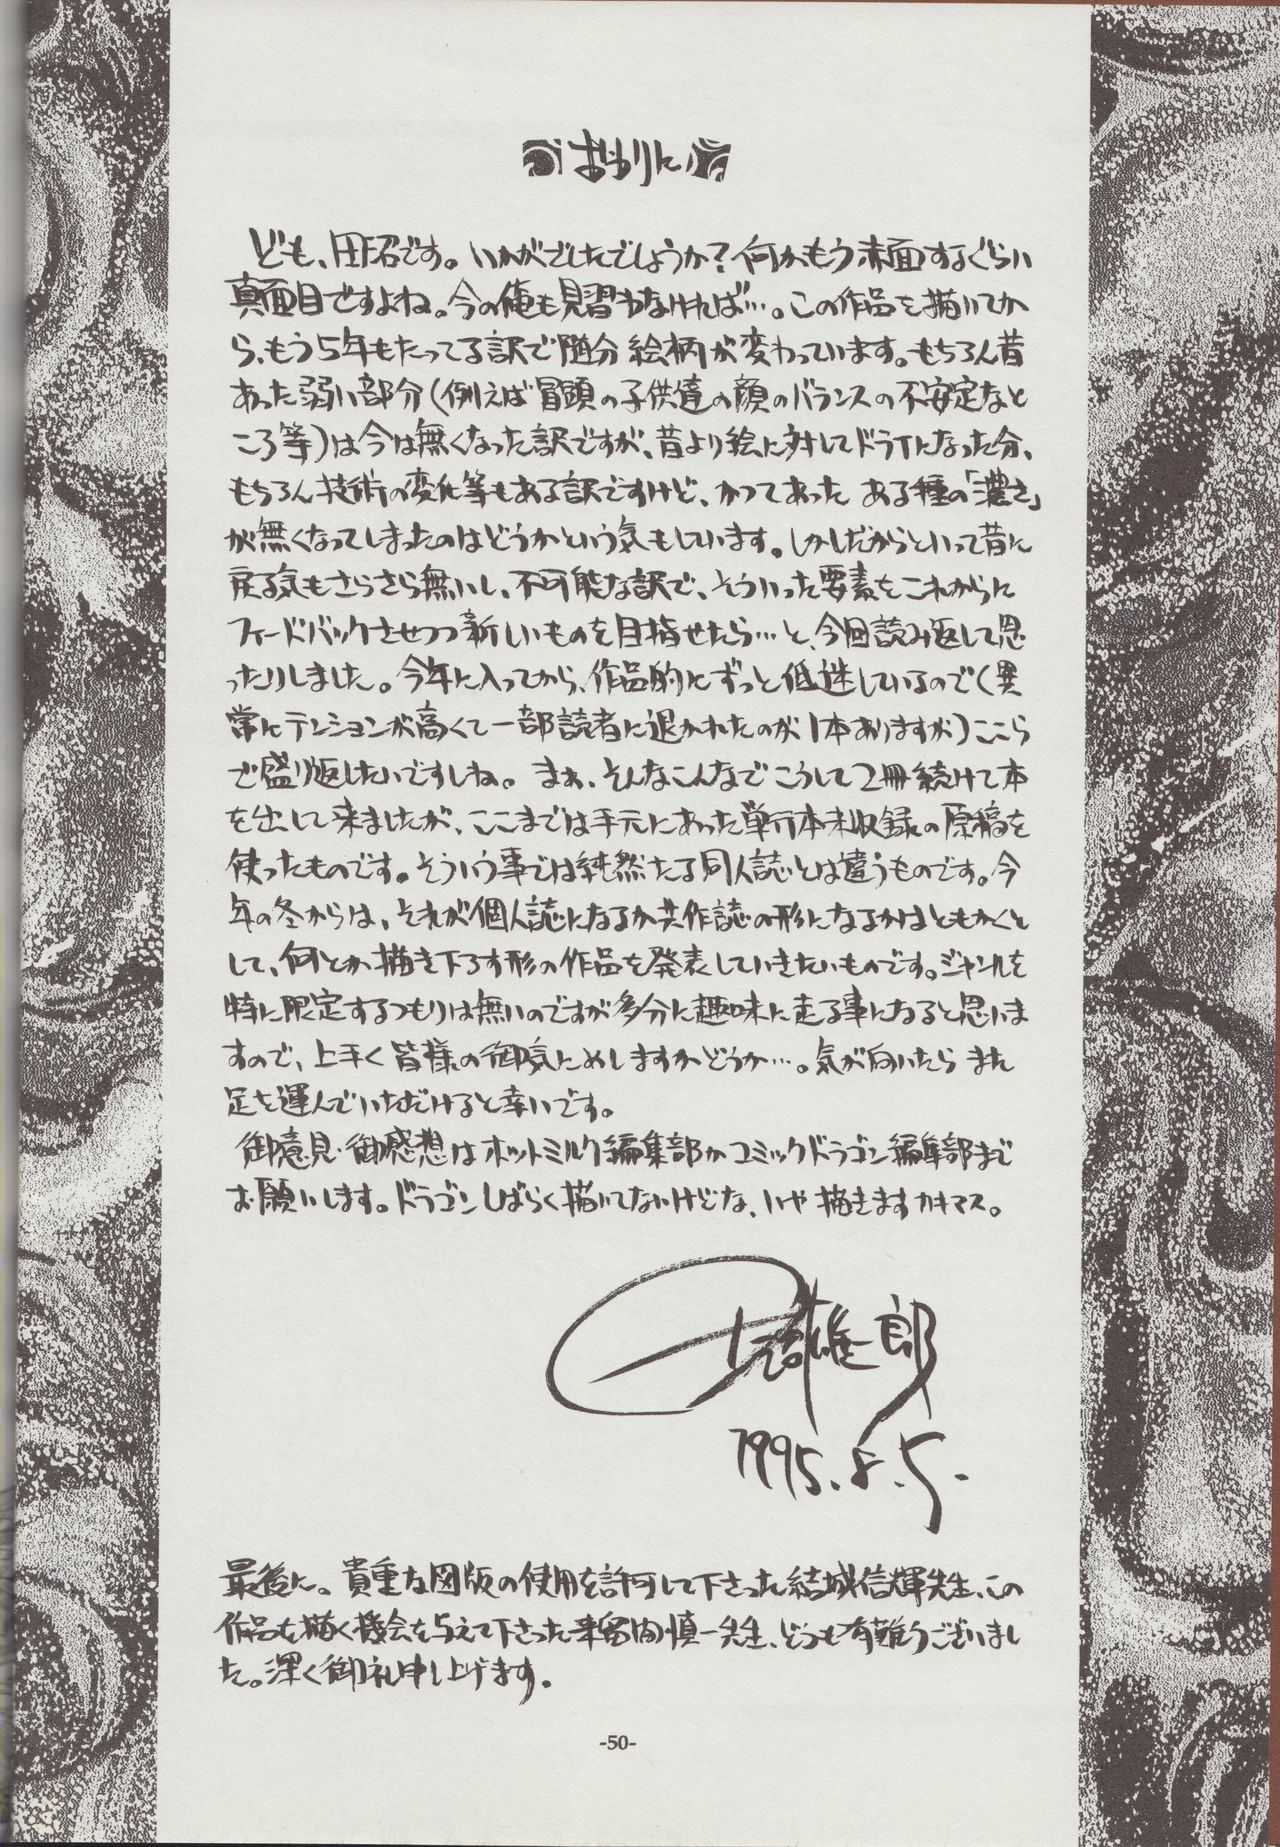 おわりに
ども、田沼です。いかがでしたでしょうか？何かもう赤面するぐらい
真面目ですよね。今の俺も見習わなければ…。この作品を描いてか
ら、もう5年もたってる訳で随分絵柄が変わっています。もちろん昔
あった弱い部分(例えば冒頭の子供達の顔のバランスの不安定なと
ころ等)は今は無くなった訳ですが、昔より絵に対してドライになった分、
もちろん技術の変化等もある訳ですけど、かつてあった ある種の「濃さ」
が無くなってしまったのはどうかという気もしています。しかしだからといって昔に
戻る気もさらさら無いし、不可能な訳で、そういった要素をこれからに
フィードバックさせつつ新しいものを目指せたら…と、今回読み返して思
ったりしました。今年に入ってから、作品的にずっと低迷しているので(異
常にテンションが高くて一部読者に退かれたのが1本ありますが)ここら
で盛り返したいですしね。まぁ、そんなこんなでこうして2冊続けて本
を出して来ましたが、ここまでは手元にあった単行本未収録の原稿を
使ったものです。そういう事では純然たる同人誌とは違うものです。今
年の冬からは、それが個人誌になるか共作誌の形になるかはともかくと
して、何とか描き下ろす形の作品を発表していきたいものです。ジャンルを
特に限定するつもりは無いのですが多分に趣味に走る事になると思いま
すので、上手く皆様の御気にめしますかどうか…。気が向いたら また
足を運んでいただけると幸いです。
御意見・御感想はホットミルク編集部かコミックドラゴン編集部まで
お願いします。ドラゴンしばらく描いてないけどな、いや描きますカキマス。
田沼雄一郎
1995.8.5.
最後に。貴重な図版の使用を許可して下さった結城信輝先生、この
作品を描く機会を与えて下さった来留間慎一先生、どうも有難うございまし
た。深く御礼申し上げます。
-50-